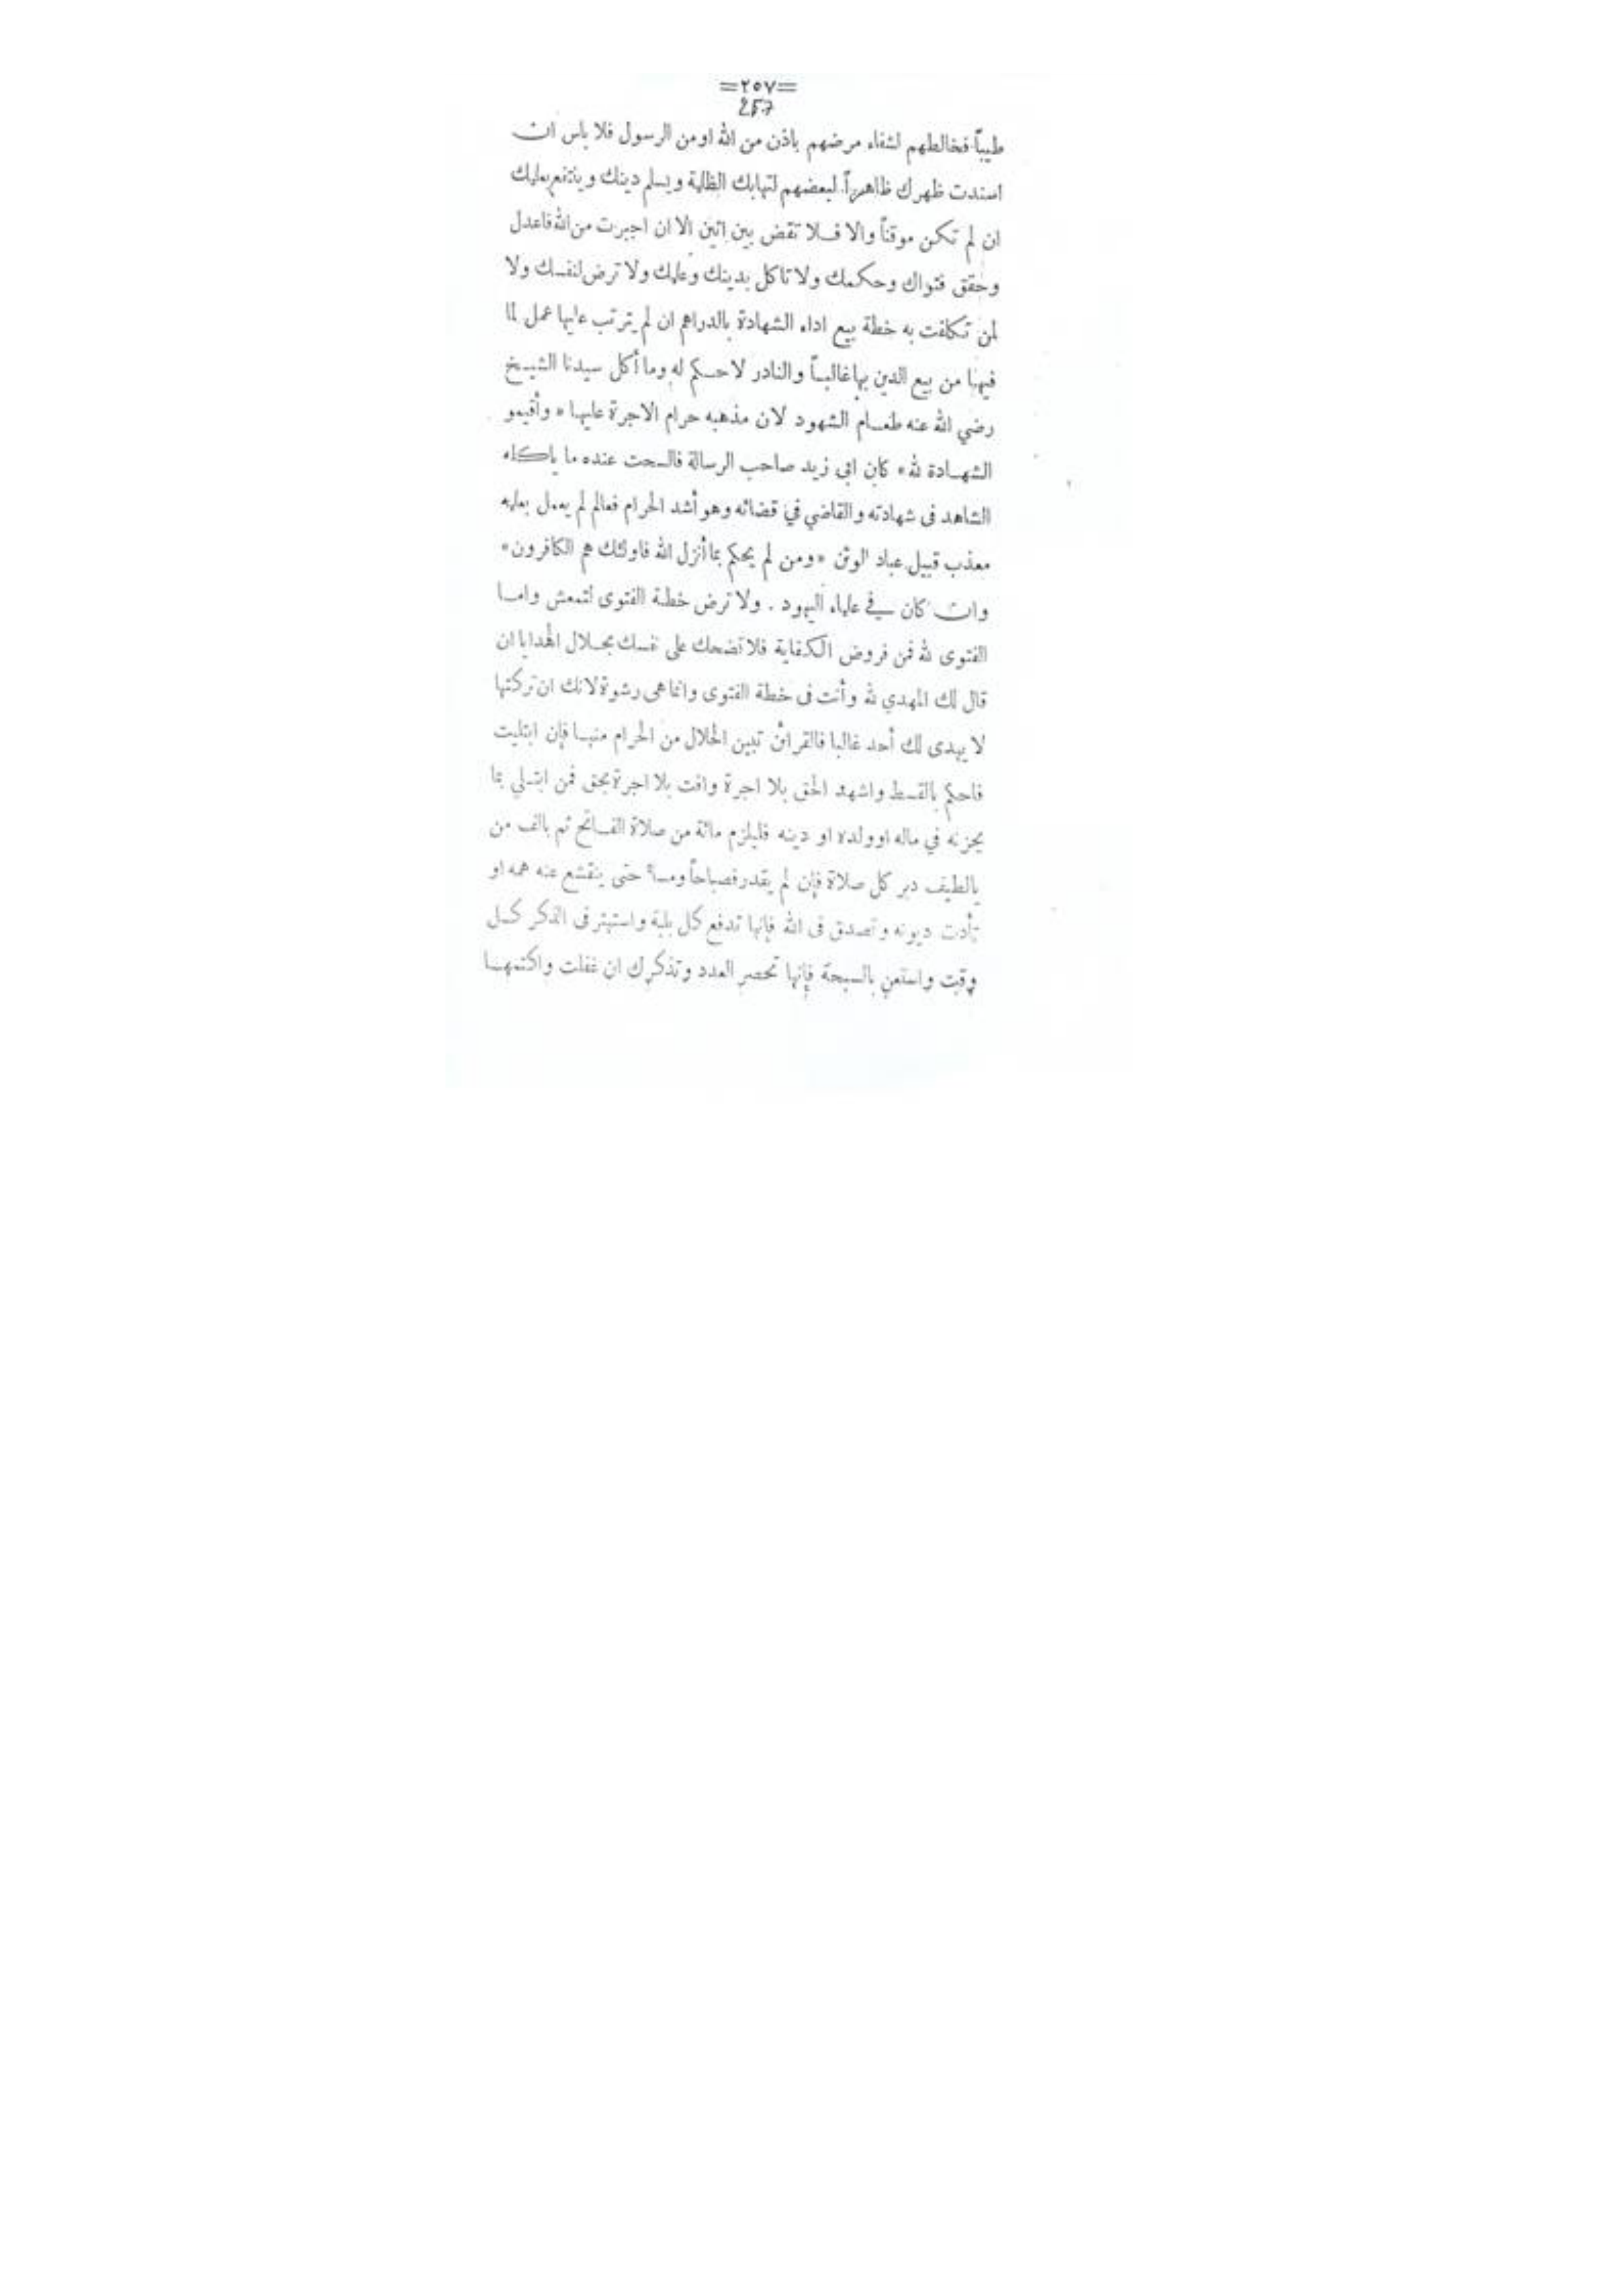 =٢٥٧=
257
طيباً فخالطهم لشفاء مرضهم باذن من الله او من الرسول فلا باس ان
اسندت ظهرك ظاهراً لبعضهم لتهابك الظلمة ويسلم دينك وينتفع بعلمك
ان لم تكن موقناً والا فلا تقض بين اثنين الا ان اجبرت من الله فاعدل
وحقق فتواك وحكمك ولا تاكل بدينك وعلمك ولا ترض لنفسك ولا
لمن تكلفت به خطة بيع اداء الشهادة بالدراهم ان لم يترتب عليها عمل لما
فيها من بيع الدين بها غالباً والنادر لا حكم له وما أكل سيدنا الشيخ
رضي الله عنه طعام الشهود لان مذهبه حرام الاجرة عليها « وأقيمو
الشهادة لله » كابن ابى زيد صاحب الرسالة فالسحت عنده ما ياكله
الشاهد فى شهادته والقاضي في قضائه وهو أشد الحرام فعالم لم يعمل بعلمه
معذب قبيل عباد الوثن «ومن لم يحكم بما أنزل الله فاولئك هم الكافرون»
وان كان في علماء اليهود . ولا ترض خطة الفتوى لتمعش واما
الفتوى لله فمن فروض الكفاية فلا تضحك على نفسك بحلال الهدايا ان
قال لك المهدي لله وأنت فى خطة الفتوى وانما هى رشوة لانك ان تركتها
لا يهدى لك أحد غالبا فالقرائن تبين الحلال من الحرام منها فإن ابتليت
فاحكم بالقسط واشهد الحق بلا اجرة وافت بلا اجرة بحق فمن ابتلي بما
يحزنه في ماله او ولده او دينه فليلزم مائة من صلاة الفاتح ثم بالف من
يالطيف دبر كل صلاة فإن لم يقدر فصباحاً ومساء حتى ينقشع عنه همه او
تأدت ديونه وتصدق فى الله فإنها تدفع كل بلية واستهتر فى الذكر كل
وقت واستعن بالسبحة فإنها تحصر العدد وتذكرك ان غفلت واكتمها